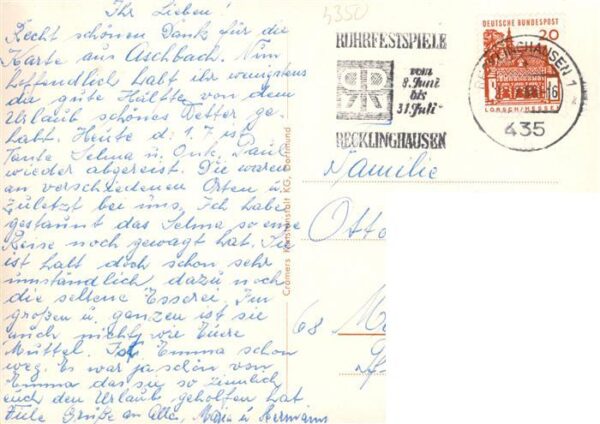 Ihr Lieben!
Recht schönen Dank für die
Karte aus Aschbach. Nun
hoffendlich habt ihr wenigstens
da gute Hälfte von dem
Urlaub schönes Wetter ge-
habt. Heute d. 1.7 ist
Tante Selma u. Onk. Paul
wieder abgereist. Die waren
an verschiedenen Orten u.
zuletzt bei uns, Ich habe
gestaunt das Selma so eine
Reise noch gewagt hat. Sie
ist halt doch schon sehr
umständlich, dazu noch
die seltene Esserei. Im
großen u. ganzen ist sie
auch nicht wie Eure
Muttel. Ist Emma schon
weg. Es war ja schön von
Emma das sie so ziemlich
euch den Urlaub geholfen hat
Viele Grüße an Alle, Maria u. Hermann
Cramers Kunstanstalt KG, Dortmund
5350
RUHRFESTSPIELE
vom
8. Juni
bis
31. Juli
RECKLINGHAUSEN
DEUTSCHE BUNDESPOST
20
LORSCH/HESSEN
RECKLINGHAUSEN 1
-16
435
Familie
Otto
68